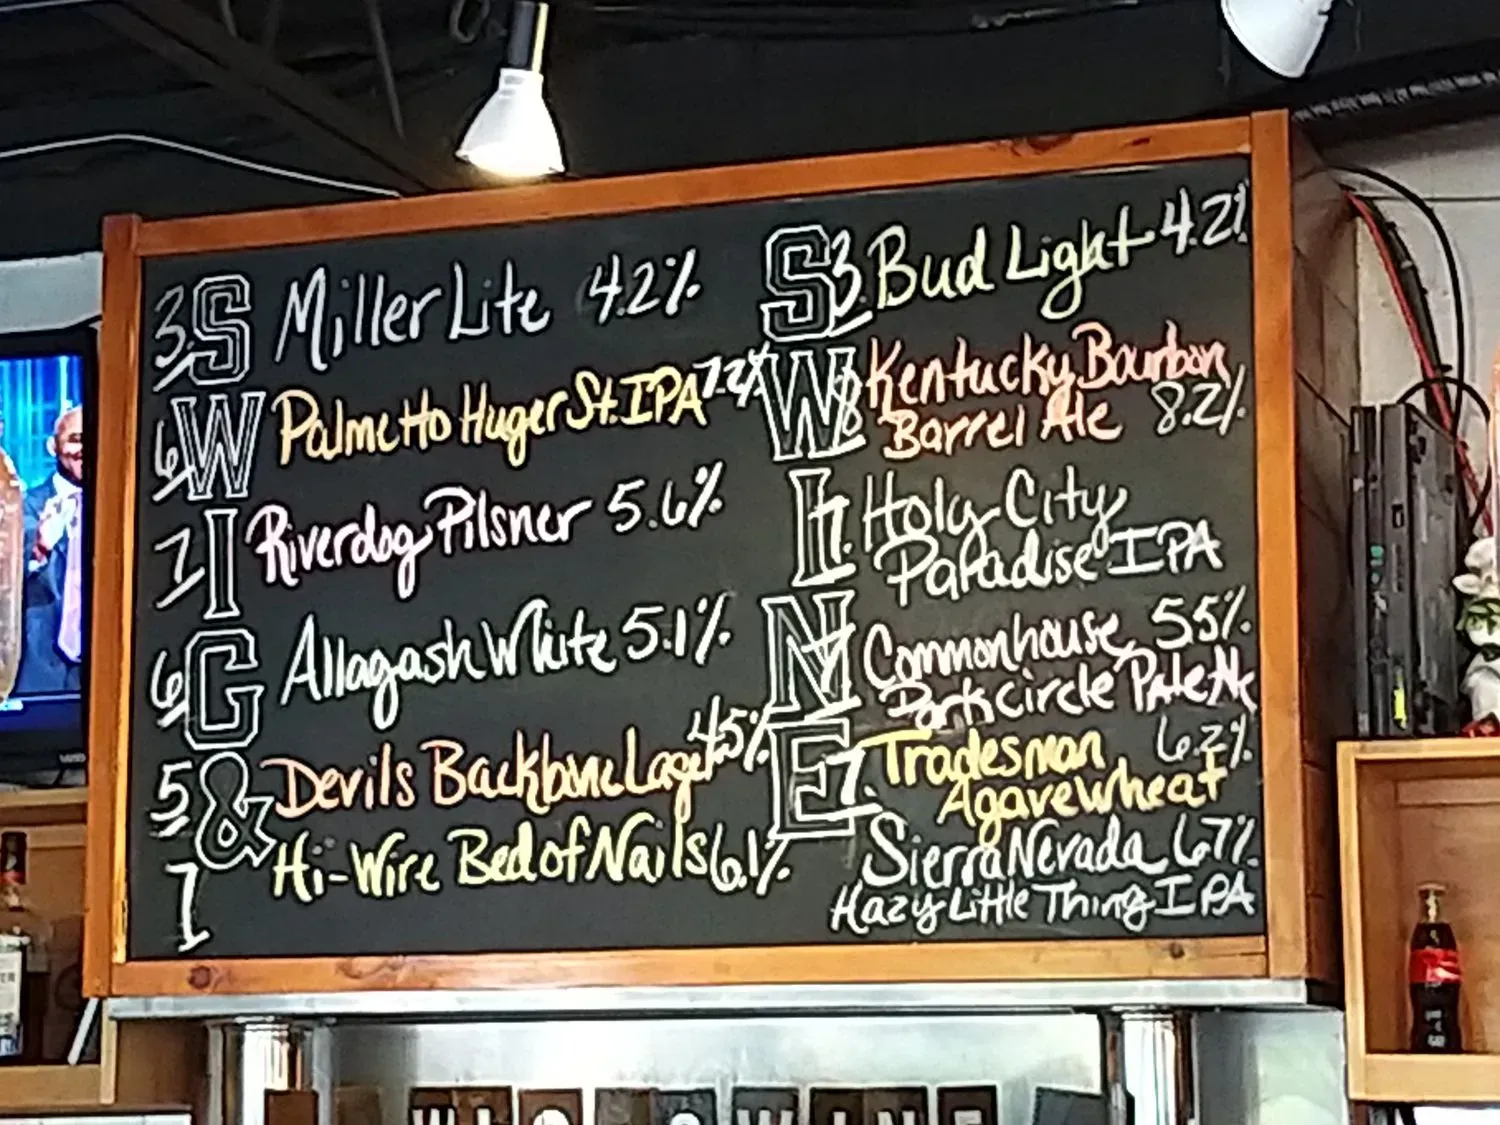 3. S Miller Lite 4.2%
6 W Palmetto Huger St. IPA 7.2%
7 I Riverdog Pilsner 5.6%
6 G Allagash White 5.1%
5 & Devils Backbone Lager 4.5%
7 Hi-Wire Bed of Nails 6.1%
S 3. Bud Light 4.2%
W 8 Kentucky Bourbon
Barrel Ale 8.2%
I 7. Holy City
Paradise IPA
N 7 Commonhouse 5.5%
Park Circle Pale Ale
E 7. Tradesman 6.2%
Agave wheat
Sierra Nevada 6.7%
Hazy Little Thing IPA